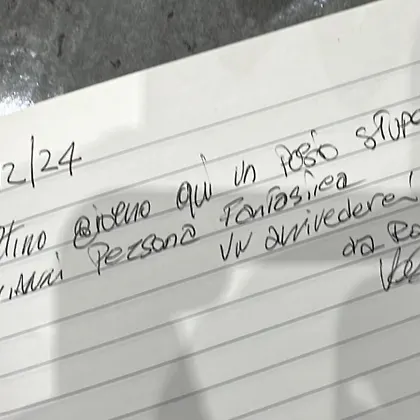 2/24
timo giorno qui in posto stupe
persona fantastica
un arrivederci
da Ro